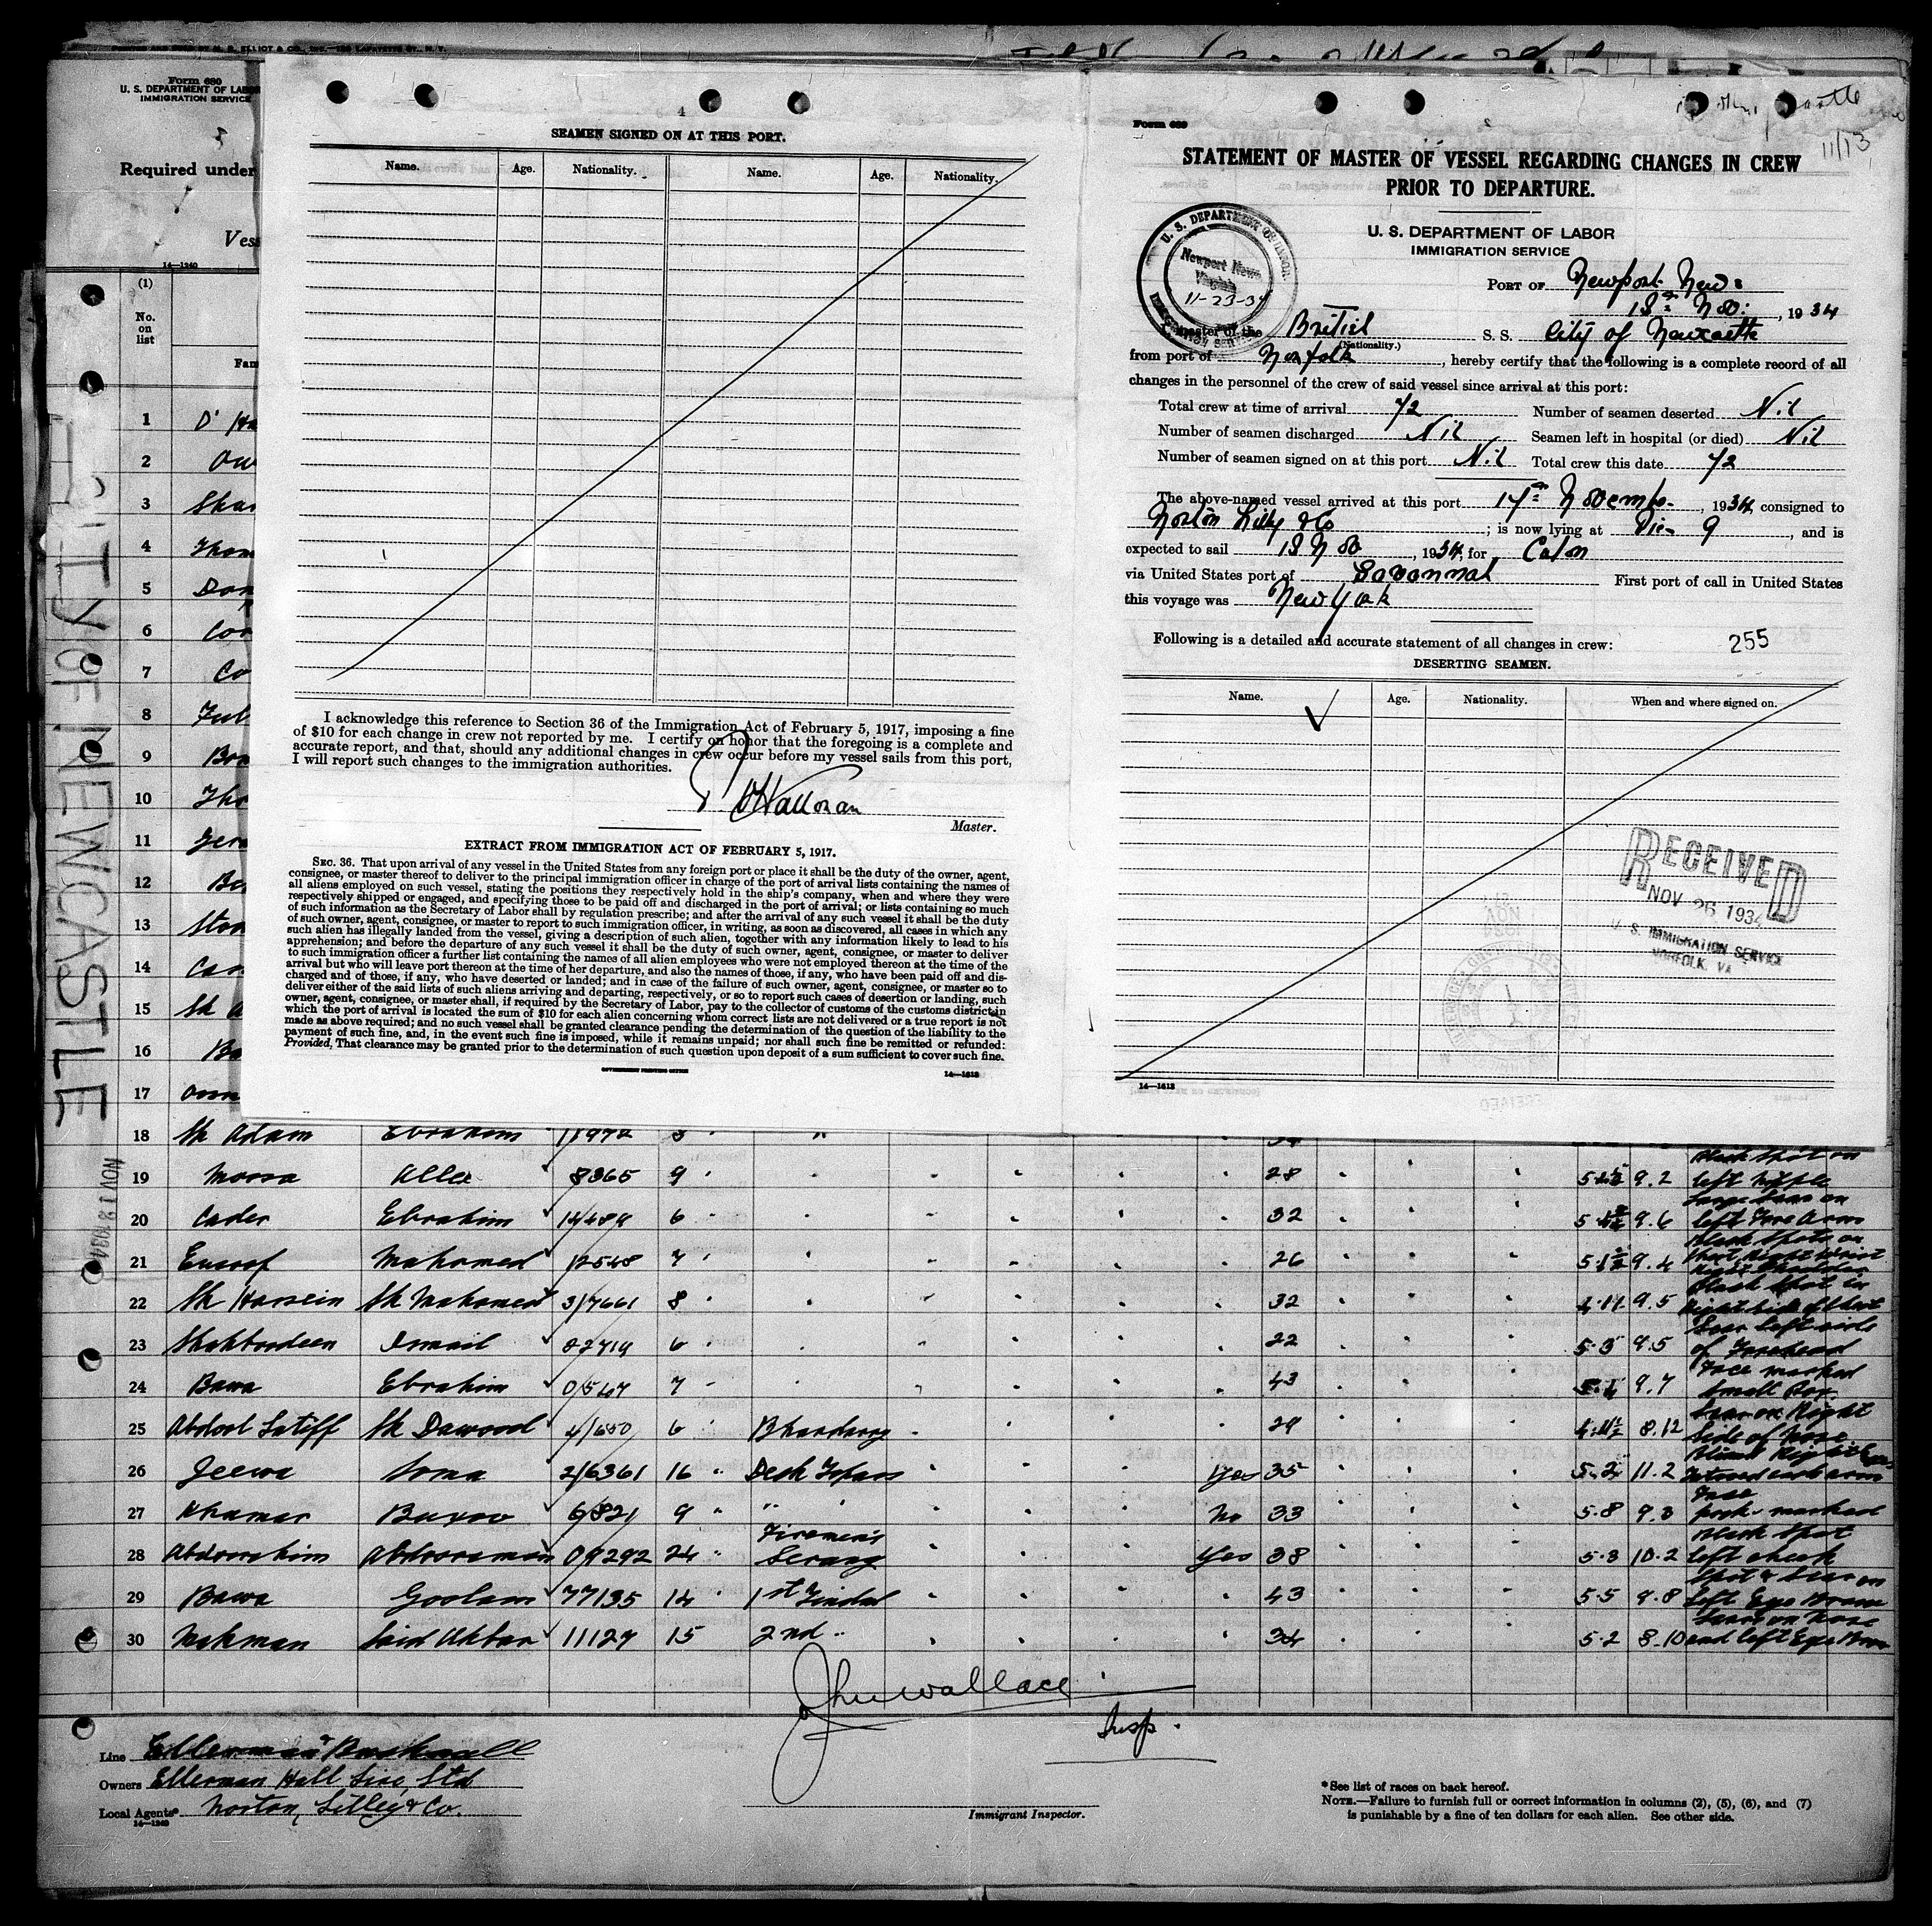 PRINTED AND SOLD BY M. B. ELLIOT & CO., INC.—126 LAFAYETTE ST., N. Y.
Form 680
U. S. DEPARTMENT OF LABOR
IMMIGRATION SERVICE
Required under
Vess
14—1240
(1)
No.
on
list
Fam
CITY OF NEWCASTLE
NOV 13 1934
1 D' Ha
2 Ow
3 Shar
4 Thom
5 Don
6 Cor
7 Co
8 Ful
9 Bro
10 Tho
11 Jer
12 Be
13 Ston
14 Car
15 Sk A
16 Ba
17 Osm
4
SEAMEN SIGNED ON AT THIS PORT.
Name. Age. Nationality. Name. Age. Nationality.
I acknowledge this reference to Section 36 of the Immigration Act of February 5, 1917, imposing a fine
of $10 for each change in crew not reported by me. I certify on honor that the foregoing is a complete and
accurate report, and that, should any additional changes in crew occur before my vessel sails from this port,
I will report such changes to the immigration authorities.
O'Halloran
Master.
EXTRACT FROM IMMIGRATION ACT OF FEBRUARY 5, 1917.
SEC. 36. That upon arrival of any vessel in the United States from any foreign port or place it shall be the duty of the owner, agent,
consignee, or master thereof to deliver to the principal immigration officer in charge of the port of arrival lists containing the names of
all aliens employed on such vessel, stating the positions they respectively hold in the ship's company, when and where they were
respectively shipped or engaged, and specifying those to be paid off and discharged in the port of arrival; or lists containing so much
of such information as the Secretary of Labor shall by regulation prescribe; and after the arrival of any such vessel it shall be the duty
of such owner, agent, consignee, or master to report to such immigration officer, in writing, as soon as discovered, all cases in which any
such alien has illegally landed from the vessel, giving a description of such alien, together with any information likely to lead to his
apprehension; and before the departure of any such vessel it shall be the duty of such owner, agent, consignee, or master to deliver
to such immigration officer a further list containing the names of all alien employees who were not employed thereon at the time of the
arrival but who will leave port thereon at the time of her departure, and also the names of those, if any, who have been paid off and dis-
charged and of those, if any, who have deserted or landed; and in case of the failure of such owner, agent, consignee, or master so to
deliver either of the said lists of such aliens arriving and departing, respectively, or so to report such cases of desertion or landing, such
owner, agent, consignee, or master shall, if required by the Secretary of Labor, pay to the collector of customs of the customs district in
which the port of arrival is located the sum of $10 for each alien concerning whom correct lists are not delivered or a true report is not
made as above required; and no such vessel shall be granted clearance pending the determination of the question of the liability to the
payment of such fine, and, in the event such fine is imposed, while it remains unpaid; nor shall such fine be remitted or refunded:
Provided, That clearance may be granted prior to the determination of such question upon deposit of a sum sufficient to cover such fine.
GOVERNMENT PRINTING OFFICE
14—1613
11/13
Form 689
STATEMENT OF MASTER OF VESSEL REGARDING CHANGES IN CREW
PRIOR TO DEPARTURE.
U. S. DEPARTMENT OF LABOR
IMMIGRATION SERVICE
U. S. DEPARTMENT OF LABOR
Newport News
Virginia
11-23-34
IMMIGRATION SERVICE
PORT OF Newport News
18th Nov: , 1934
I, master of the British S. S. City of Newcastle
(Nationality.)
from port of Norfolk, hereby certify that the following is a complete record of all
changes in the personnel of the crew of said vessel since arrival at this port:
Total crew at time of arrival 72 Number of seamen deserted Nil
Number of seamen discharged Nil Seamen left in hospital (or died) Nil
Number of seamen signed on at this port Nil Total crew this date 72
The above-named vessel arrived at this port 17th November, 1934, consigned to
Norton Lilly & Co; is now lying at Pier 9, and is
expected to sail 18 Nov, 1934, for Colon
via United States port of Savannah First port of call in United States
this voyage was New York
Following is a detailed and accurate statement of all changes in crew: 255
DESERTING SEAMEN.
Name. Age. Nationality. When and where signed on.
RECEIVED
NOV 26 1934
U. S. IMMIGRATION SERVICE
NORFOLK, VA
14—1613
18 Sk Adam Ebrahim 11972
19 Moosa Allee 8365 9 28 9.2 Black Spot on left Nipple
20 Cader Ebrahim 14489 6 32 9.6 Large Scar on left Fore Arm
21 Eusoof Mahomed 12548 7 26 9.4 Black Spots on
22 Sk Hassein Sk Mahomed 3/7661 8 32 4.11 9.5 Black Spot in Right Side of Chest
23 Shahboodeen Ismail 82719 6 22 5.3 9.5 Scar left side of Forehead
24 Bawa Ebrahim 0/567 7 43 9.7 Face marked Small Pox.
25 Abdool Latiff Sk Dawood 4/650 6 Bhandarry 29 8.12 Scar on Right Side of Nose
26 Jeewa Soma 2/6361 16 Deck Topass Yes 35 5.2 11.2
27 Khamar Buxoo 6821 9 " No 33 5.8 9.3 Face pock-marked
28 Abdoorahim Abdooraman 09292 24 Firemen's Serang Yes 38 5.3 10.2 Black Spot left cheek
29 Bawa Goolam 77135 14 1st Tindal 43 5.5 9.8 Spot & Scar on left Eye Brow
30 Mukman Said Akbar 11127 15 2nd " 34 5.2 8.10 Scars on Nose and left Eye Brow
John Wallace
Insp.
Line Ellerman & Bucknall
Owners Ellerman Hall Line, Ltd
Local Agents Norton, Lilley & Co.
14—1240
Immigrant Inspector.
* See list of races on back hereof.
NOTE.—Failure to furnish full or correct information in columns (2), (5), (6), and (7)
is punishable by a fine of ten dollars for each alien. See other side.